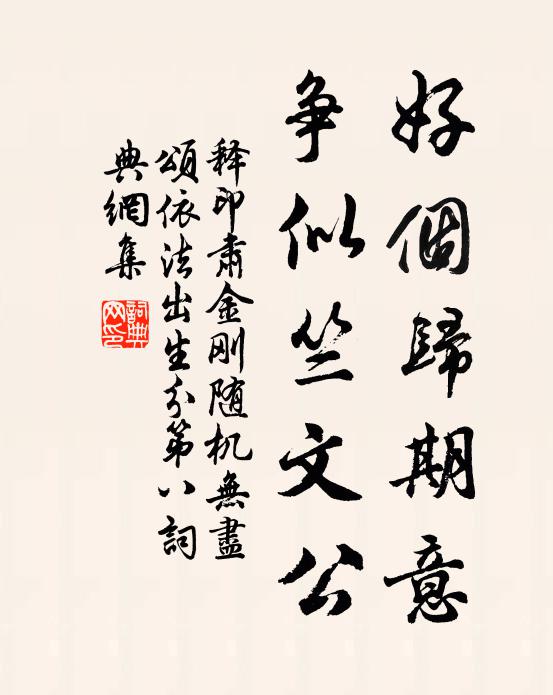 好個歸期意
争似竺文公
释印肃金刚随机無盡
頌依法出生分第八詞
典網集
詞典網印